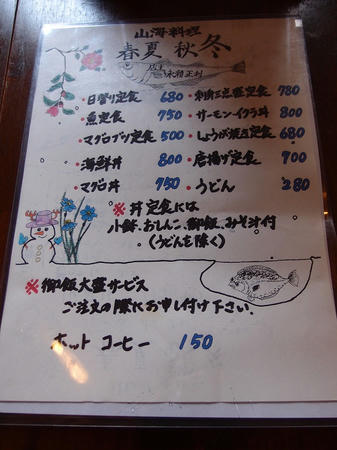 山海料理
春夏秋冬
店主 永精正利
・日替り定食 680
・魚定食 750
・マグロブツ定食 500
・海鮮丼 800
・マグロ丼 750
・刺身三点盛定食 780
・サーモン・イクラ丼 800
・しょうが焼き定食 680
・唐揚げ定食 700
・うどん 280
※丼定食には
小鉢、おしんこ、御飯、みそ汁付
(うどんを除く)
※御飯大盛サービス
ご注文の際にお申し付け下さい.
ホット コーヒー 150